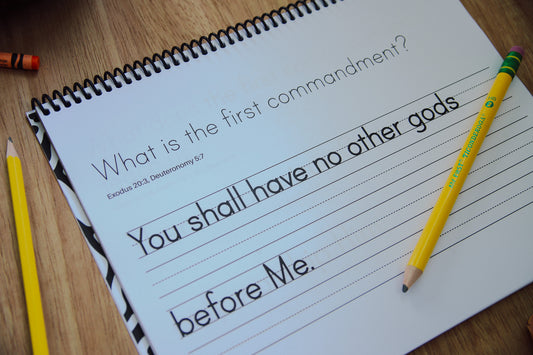 What is the first commandment?
Exodus 20:3, Deuteronomy 5:7
You shall have no other gods
before Me.